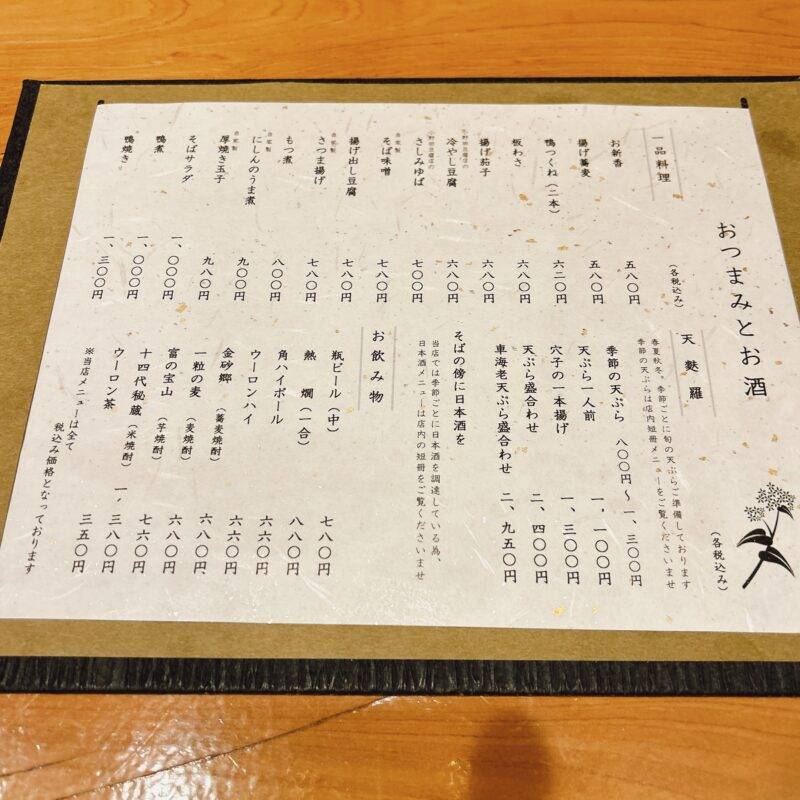 おつまみとお酒
一品料理
(各税込み)
お新香 五八〇円
揚げ蕎麦 五八〇円
鴨つくね(二本) 六二〇円
板わさ 六八〇円
揚げ茄子 六八〇円
冷やし豆腐 六八〇円
さしみゆば 七〇〇円
自家製
そば味噌 七八〇円
揚げ出し豆腐 七八〇円
自家製
さつま揚げ 七八〇円
もつ煮 八〇〇円
自家製
にしんのうま煮 九〇〇円
自家製
厚焼き玉子 九八〇円
そばサラダ 一、〇〇〇円
鴨煮 一、〇〇〇円
鴨焼き 一、三〇〇円
(各税込み)
天麩羅
春夏秋冬、季節ごとに旬の天ぷらご準備しております
季節の天ぷらは店内短冊メニューをご覧くださいませ
季節の天ぷら 八〇〇円〜一、三〇〇円
天ぷら一人前 一、一〇〇円
穴子の一本揚げ 一、三〇〇円
天ぷら盛合わせ 二、四〇〇円
車海老天ぷら盛合わせ 二、九五〇円
そばの傍に日本酒を
当店では季節ごとに日本酒を調達している為、
日本酒メニューは店内の短冊をご覧くださいませ
お飲み物
瓶ビール(中) 七八〇円
熱燗(一合) 八八〇円
角ハイボール 六六〇円
ウーロンハイ 六六〇円
金砂郷(蕎麦焼酎) 六八〇円
一粒の麦(麦焼酎) 六八〇円
富の宝山(芋焼酎) 七六〇円
十四代秘蔵(米焼酎) 一、三八〇円
ウーロン茶 三五〇円
※当店メニューは全て
税込み価格となっております